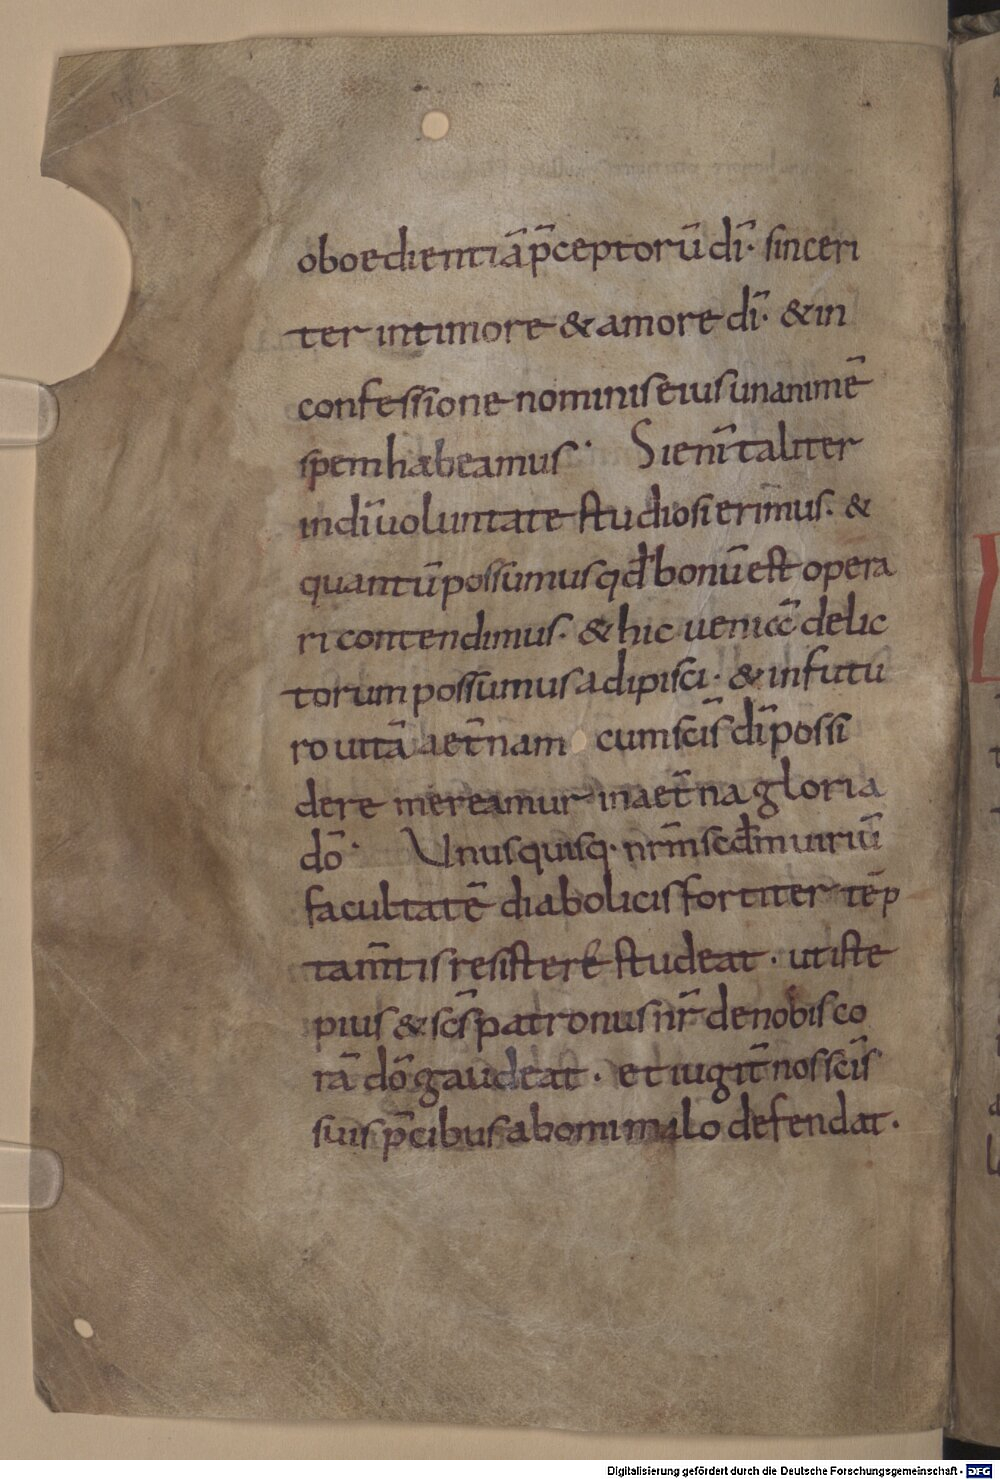 oboedientiā p̄ceptorū dī· sinceri
ter in timore & amore dī· & in
confessione nominis eius unanimē
spem habeamus· Si enī taliter
in dī uoluntate studiosi erimus· &
quantū possumus qd̄ bonū est opera
ri contendimus· & hic ueniā delic
torum possumus adipisci· & in futu
ro uitā aet̄nam cum sc̄is dī possi
dere mereamur in aet̄na gloria
dō· Unusquisq· nr̄m secd̄m uiriū
facultatē diabolicis fortiter tēp
tam̄tis resistere studeat· ut iste
pius & sc̄s patronus nr̄ de nobis co
rā dō gaudeat· et iugit̄ nos sc̄is
suis p̄cibus ab omi malo defendat·
Digitalisierung gefördert durch die Deutsche Forschungsgemeinschaft - DFG